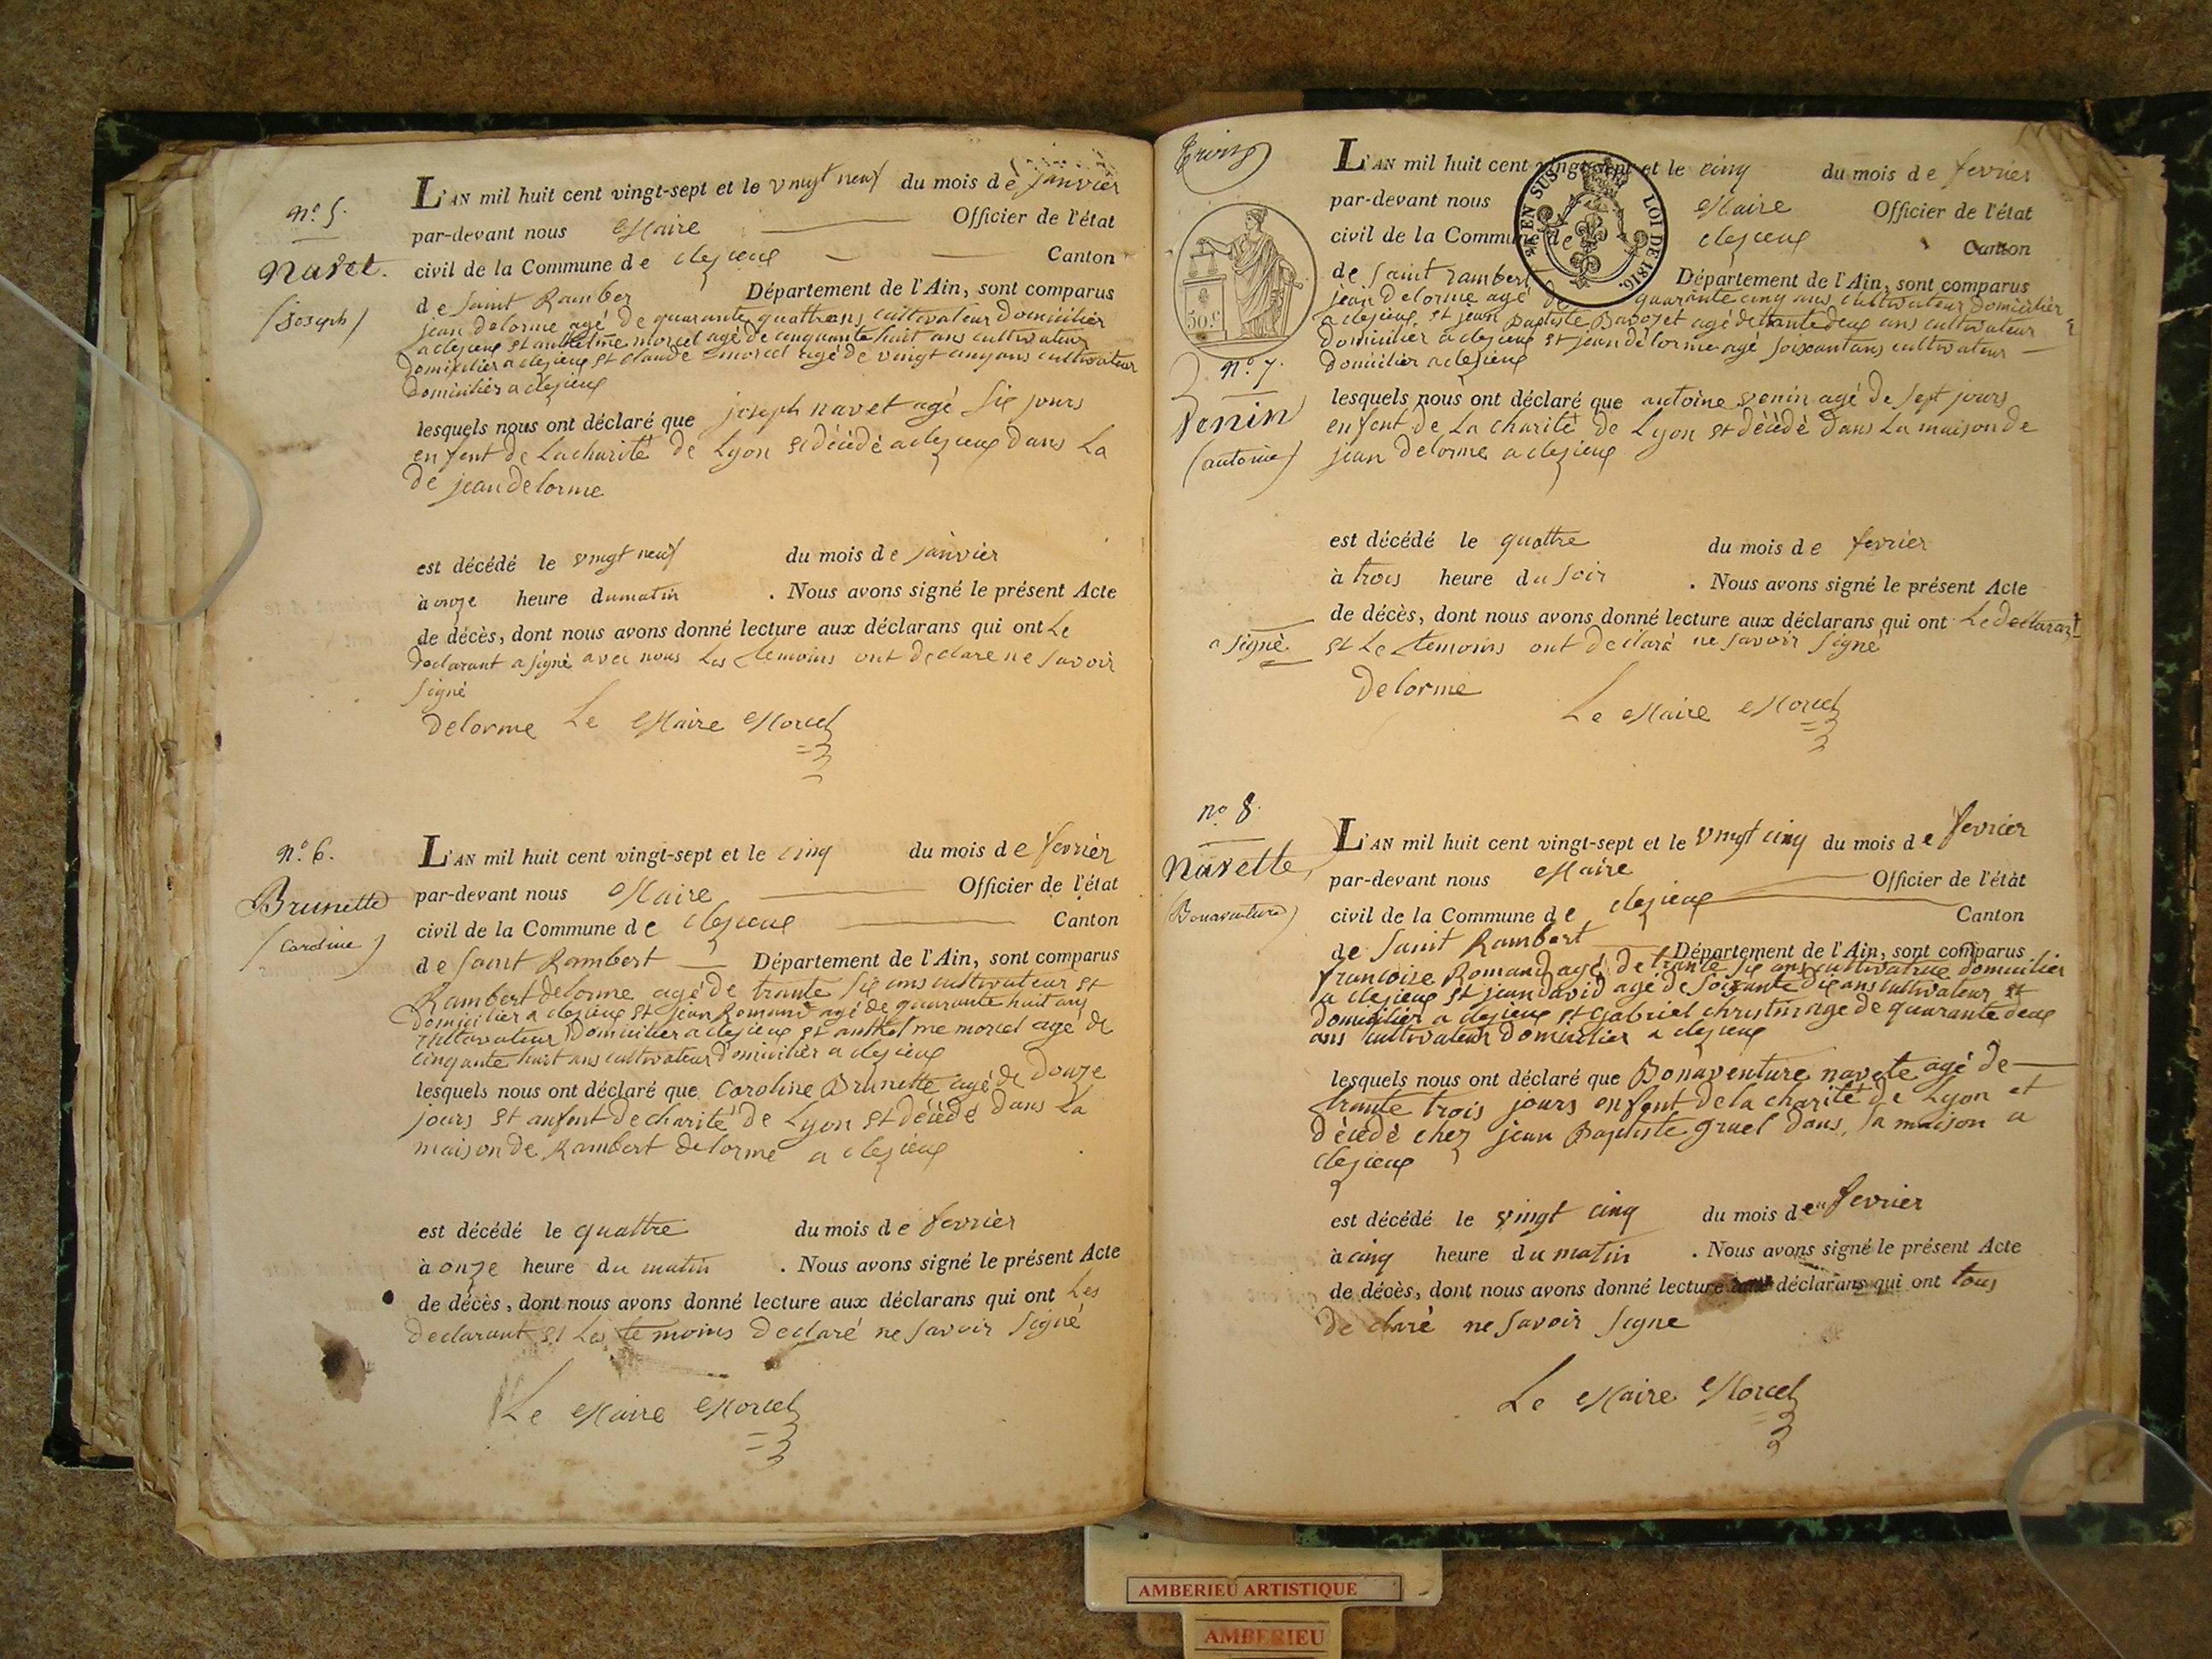 n.° 5.
navet.
(Joseph)
L'AN mil huit cent vingt-sept et le vingt neuf du mois de janvier
par-devant nous Maire Officier de l'état
civil de la Commune de clezieux Canton
de Saint Ramber Département de l'Ain, sont comparus
jean delorme agé de quarante quattre ans cultivateur domicilier
a clezieux et anthelme morcel agé de cinquante huit ans cultivateur
domicilier a clezieux et claude morcel agé de vingt cinq ans cultivateur
domicilier a clezieux
lesquels nous ont déclaré que joseph navet agé six jours
enfent de la charité de Lyon et décédé a clezieux dans La
de jean delorme
est décédé le vingt neuf du mois de janvier
à onze heure du matin . Nous avons signé le présent Acte
de décès, dont nous avons donné lecture aux déclarans qui ont Le
declarant a signé avec nous Les temoins ont declare ne savoir
signé
delorme Le Maire Morcel
n.° 6.
Brunette
(Caroline)
L'AN mil huit cent vingt-sept et le cinq du mois de fevrièr
par-devant nous Maire Officier de l'état
civil de la Commune de clezieux Canton
de Saint Rambert Département de l'Ain, sont comparus
Rambert delorme agé de trante six ans cultivateur et
domicilier a clezieux et jean Romand agé de quarante huit ans
cultivateur domicilier a clezieux et anthelme morcel agé de
cinqante huit ans cultivateur domicilier a clezieux
lesquels nous ont déclaré que Caroline Brunette agé de douze
jours et anfent de charité de Lyon et décédé dans La
maison de Rambert delorme a clezieux
est décédé le quattre du mois de fevrièr
à onze heure du matin . Nous avons signé le présent Acte
de décès, dont nous avons donné lecture aux déclarans qui ont Les
declarant et Les temoins declaré ne savoir signé
Le Maire Morcel
50.c
n.° 7.
Venin
(antoine)
L'AN mil huit cent vingt-sept et le cinq du mois de fevrier
EN SUS LOI DE 1816.
par-devant nous Maire Officier de l'état
civil de la Commune de clezieux Canton
de Saint rambert Département de l'Ain, sont comparus
jean delorme agé de quarante cinq ans cultivateur domicilier
a clezieux et jean Baptiste agé de ans cultivateur
domicilier a clezieux et jean délorme agé soixant ans cultivateur
domicilier a clezieux
lesquels nous ont déclaré que antoine venin agé de sept jours
enfent de La charité de Lyon et décédé dans La maison de
jean delorme a clezieux
est décédé le quattre du mois de fevrier
à trois heure du soir . Nous avons signé le présent Acte
de décès, dont nous avons donné lecture aux déclarans qui ont Le déclarant
a signé. et Le temoins ont déclaré ne savoir signé
delorme
Le Maire Morcel
n.° 8.
Navette
(Bonaventure)
L'AN mil huit cent vingt-sept et le vingt cinq du mois de fevrier
par-devant nous Maire Officier de l'état
civil de la Commune de clezieux Canton
de Saint Rambert Département de l'Ain, sont comparus
francoise Romand agé de trante six ans cultivatrice domicilier
a clezieux et jean david agé de soixante dix ans cultivateur et
domicilier a clezieux et Gabriel christin age de quarante deux
ans cultivateur domicilier a clezieux
lesquels nous ont déclaré que Bonaventure navete agé de
trante trois jours enfent de la charité de Lyon et
décédé chez jean Baptiste gruel dans sa maison a
clezieux
est décédé le vingt cinq du mois de fevrier
à cinq heure du matin . Nous avons signé le présent Acte
de décès, dont nous avons donné lecture aux déclarans qui ont tous
declaré ne savoir signe
Le Maire Morcel
AMBERIEU ARTISTIQUE
AMBERIEU